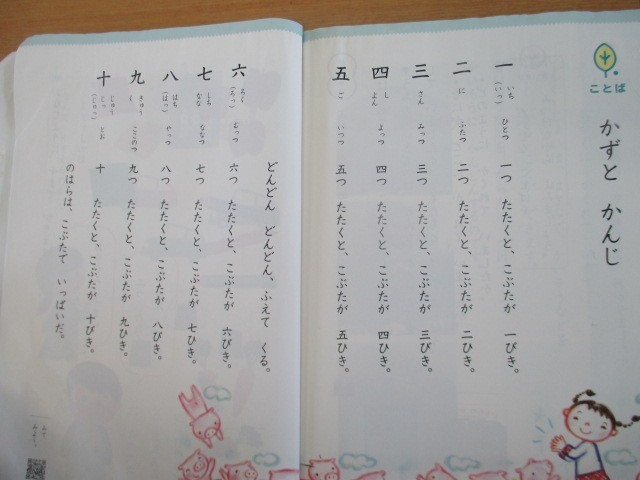 ことば
かずと かんじ
一 いち (いっ) ひとつ 一つ たたくと、こぶたが 一ぴき。
二 に ふたつ 二つ たたくと、こぶたが 二ひき。
三 さん みっつ 三つ たたくと、こぶたが 三びき。
四 し よん よっつ 四つ たたくと、こぶたが 四ひき。
五 ご いつつ 五つ たたくと、こぶたが 五ひき。
どんどん どんどん、ふえて くる。
六 ろく (ろっ) むっつ 六つ たたくと、こぶたが 六ぴき。
七 しち なな ななつ 七つ たたくと、こぶたが 七ひき。
八 はち (はっ) やっつ 八つ たたくと、こぶたが 八ぴき。
九 きゅう く ここのつ 九つ たたくと、こぶたが 九ひき。
十 じゅう じっ (じゅっ) とお 十 たたくと、こぶたが 十ぴき。
のはらは、こぶたで いっぱいだ。